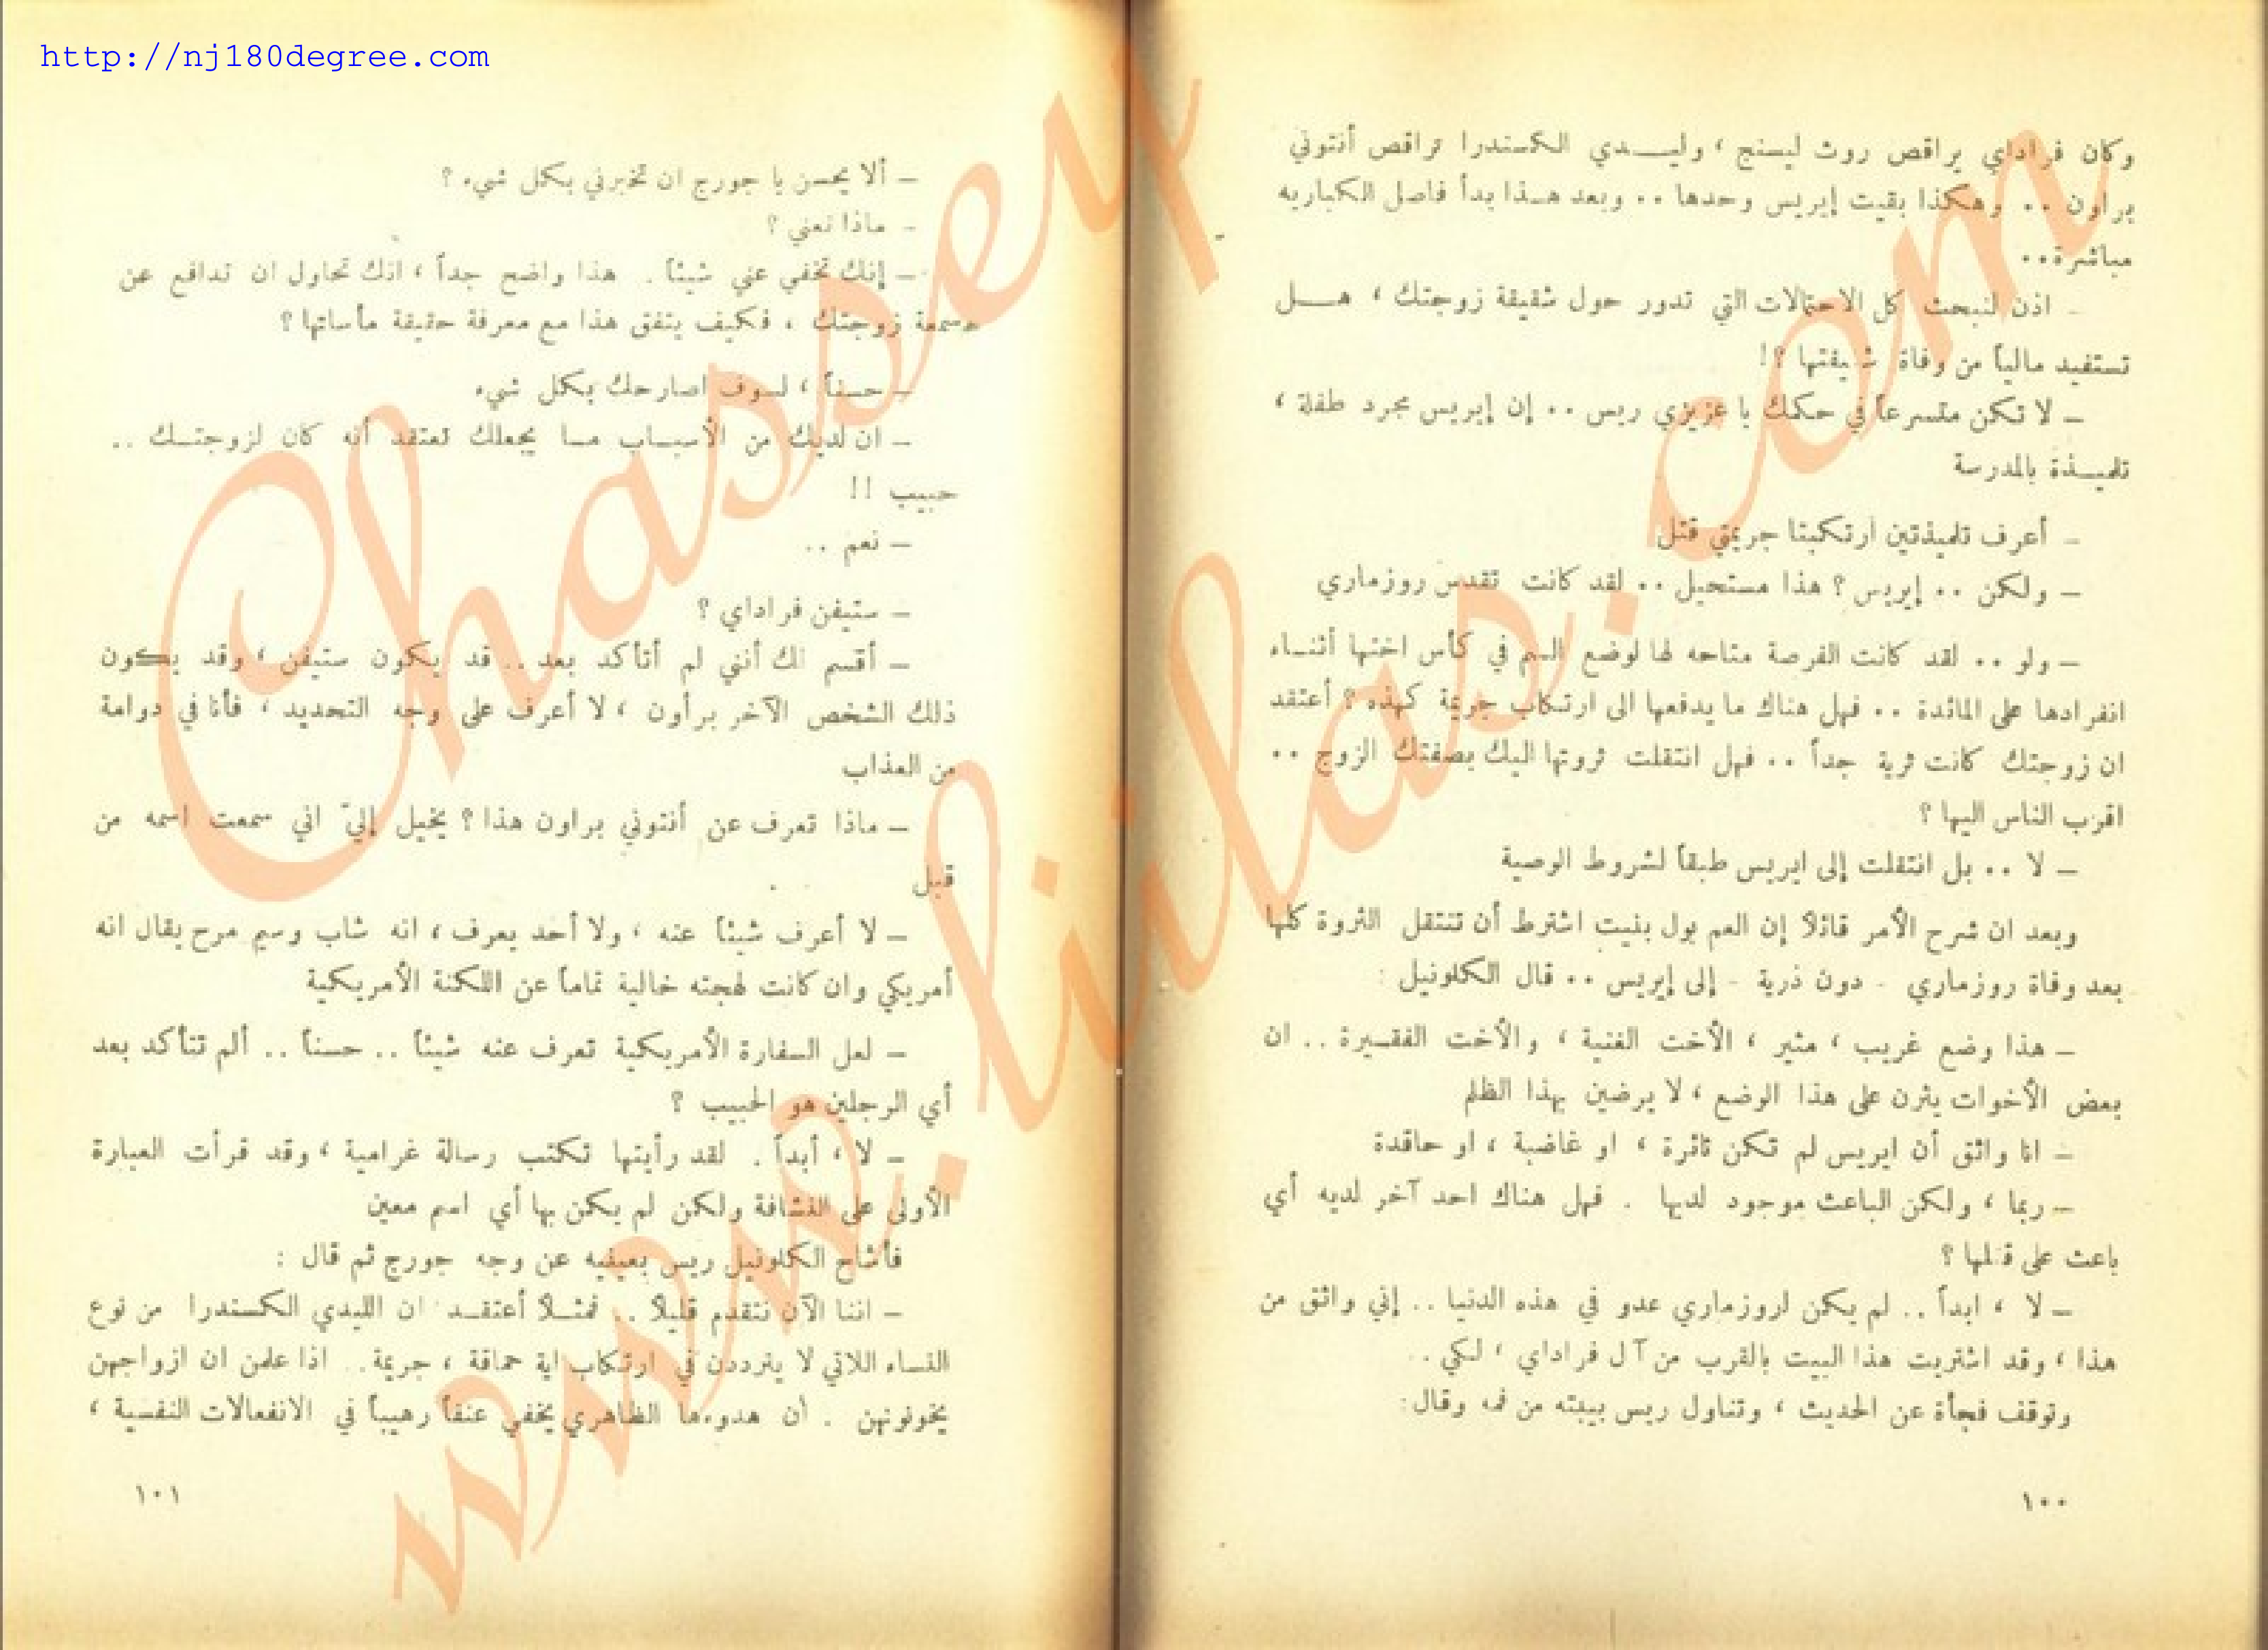 http://nj180degree.com
وكان فراداي يراقص روث ليسنج ، وليدي الكسندرا تراقص أنتوني
براون .. وهكذا بقيت إيريس وحدها .. وبعد هذا بدأ فاصل الكباريه
مباشرة ..
– اذن لنبحث كل الاحتمالات التي تدور حول شقيقة زوجتك ، هل
تستفيد مالياً من وفاة شقيقتها ؟!
– لا تكن متسرعاً في حكمك يا عزيزي ريس .. إن إيريس مجرد طفلة ،
تلميذة بالمدرسة
– أعرف تلميذتين ارتكبتا جريمتي قتل
– ولكن .. إيريس ؟ هذا مستحيل .. لقد كانت تقدس روزماري
– ولو .. لقد كانت الفرصة متاحه لها لوضع السم في كأس اختها أثناء
انفرادها على المائدة .. فهل هناك ما يدفعها الى ارتكاب جريمة كهذه ؟ أعتقد
ان زوجتك كانت ثرية جداً .. فهل انتقلت ثروتها اليك بصفتك الزوج ..
اقرب الناس اليها ؟
– لا .. بل انتقلت إلى ايريس طبقاً لشروط الوصية
وبعد ان شرح الأمر قائلاً إن العم بول بنيت اشترط أن تنتقل الثروة كلها
بعد وفاة روزماري - دون ذرية - إلى إيريس .. قال الكلونيل :
– هذا وضع غريب ، مثير ، الأخت الغنية ، والأخت الفقيرة .. ان
بعض الأخوات يثرن على هذا الوضع ، لا يرضين بهذا الظلم
– انا واثق أن ايريس لم تكن ثائرة ، او غاضبة ، او حاقدة
– ربما ، ولكن الباعث موجود لديها . فهل هناك احد آخر لديه أي
باعث على قتلها ؟
– لا ، ابداً .. لم يكن لروزماري عدو في هذه الدنيا .. إني واثق من
هذا ، وقد اشتريت هذا البيت بالقرب من آل فراداي ، لكي ..
وتوقف فجأة عن الحديث ، وتناول ريس بيبته من فمه وقال:
١٠٠
– ألا يحسن يا جورج ان تخبرني بكل شيء ؟
– ماذا تعني ؟
– إنك تخفي عني شيئاً . هذا واضح جداً ، انك تحاول ان تدافع عن
سمعة زوجتك ، فكيف يتفق هذا مع معرفة حقيقة مأساتها ؟
– حسناً ، لسوف اصارحك بكل شيء
– ان لديك من الأسباب ما يجعلك تعتقد أنه كان لزوجتك ..
حبيب !!
– نعم ..
– ستيفن فراداي ؟
– أقسم لك أنني لم أتأكد بعد .. قد يكون ستيفن ، وقد يكون
ذلك الشخص الآخر برأون ، لا أعرف على وجه التحديد ، فأنا في دوامة
من العذاب
– ماذا تعرف عن أنتوني براون هذا ؟ يخيل إليّ اني سمعت اسمه من
قبل
– لا أعرف شيئاً عنه ، ولا أحد يعرف ، انه شاب وسيم مرح يقال انه
أمريكي وان كانت لهجته خالية تماماً عن اللكنة الأمريكية
– لعل السفارة الأمريكية تعرف عنه شيئاً .. حسناً .. ألم تتأكد بعد
أي الرجلين هو الحبيب ؟
– لا ، أبداً . لقد رأيتها تكتب رسالة غرامية ، وقد قرأت العبارة
الأولى على النشافة ولكن لم يكن بها أي اسم معين
فأشاح الكلونيل ريس بعينيه عن وجه جورج ثم قال :
– اننا الآن نتقدم قليلاً .. فمثلاً أعتقد ان الليدي الكسندرا من نوع
النساء اللاتي لا يترددن في ارتكاب اية حماقة ، جريمة .. اذا علمن ان ازواجهن
يخونونهن . أن هدوءها الظاهري يخفي عنفاً رهيباً في الانفعالات النفسية ،
١٠١
www.liilas.com
Chassery